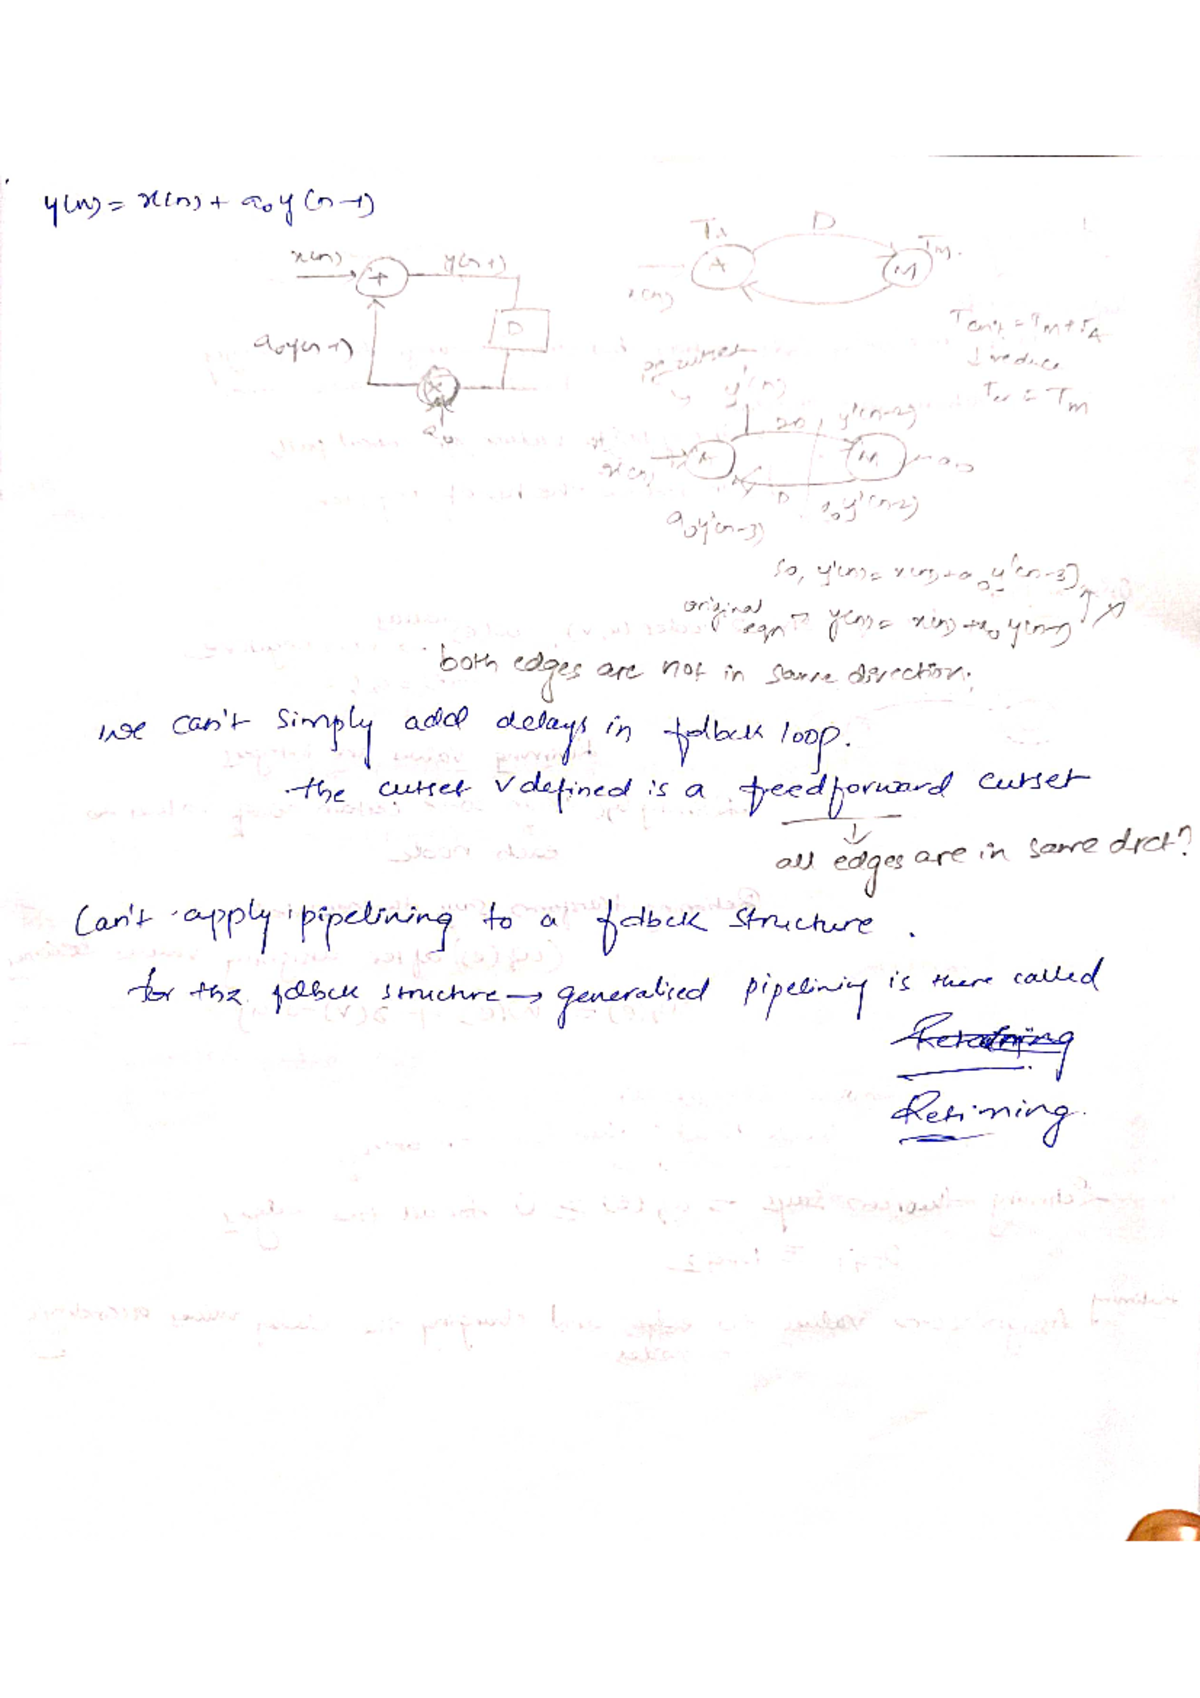 y(n) = x(n) + a₀y(n-1)
x(n)
+
y(n+1)
D
a₀y(n-1)
×
a₀
TA
D
TM.
A
M
x(n)
Tcrit = TM+TA
↓ reduce
Tcr = TM
y'(n)
2D
y'(n-2)
x(n)
A
M
a₀
D
a₀y'(n-3)
a₀y'(n-2)
so, y'(n) = x(n)+a₀y'(n-3)
original eqn → y(n) = x(n)+a₀y(n-1)
both edges are not in same direction.
we can't simply add delays in fdbck loop.
the cutset defined is a feedforward cutset
↓
all edges are in same drct?
Can't apply pipelining to a fdbck structure.
for the fdbck structure → generalised pipelining is there called
Retiming.